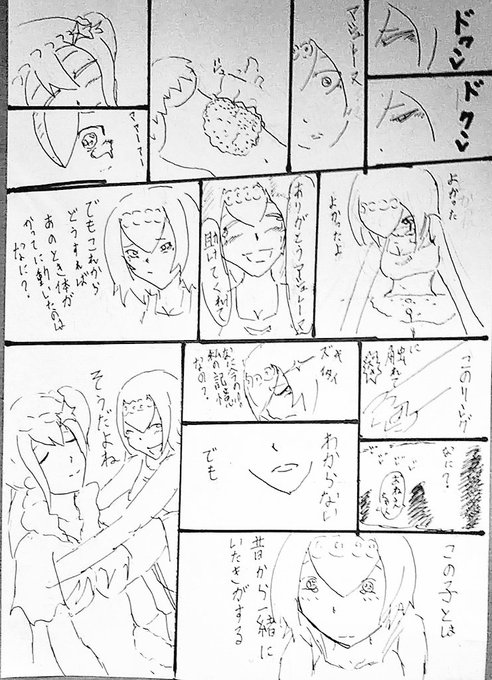 ドクン
ドクン
マジョトース
マ…マ…マー
よかった
よかったよ
ありがとうマジョトース
助けてくれて
でもこれから
どうすれば
あのとき体が
かってに動いたのは
なに?
このリング
に
触れて
なに?
おねえ
ちゃん
ズキィ
私の記憶
なの?
わからない
でも
この子とは
昔から一緒に
いたきがする
そうだよね